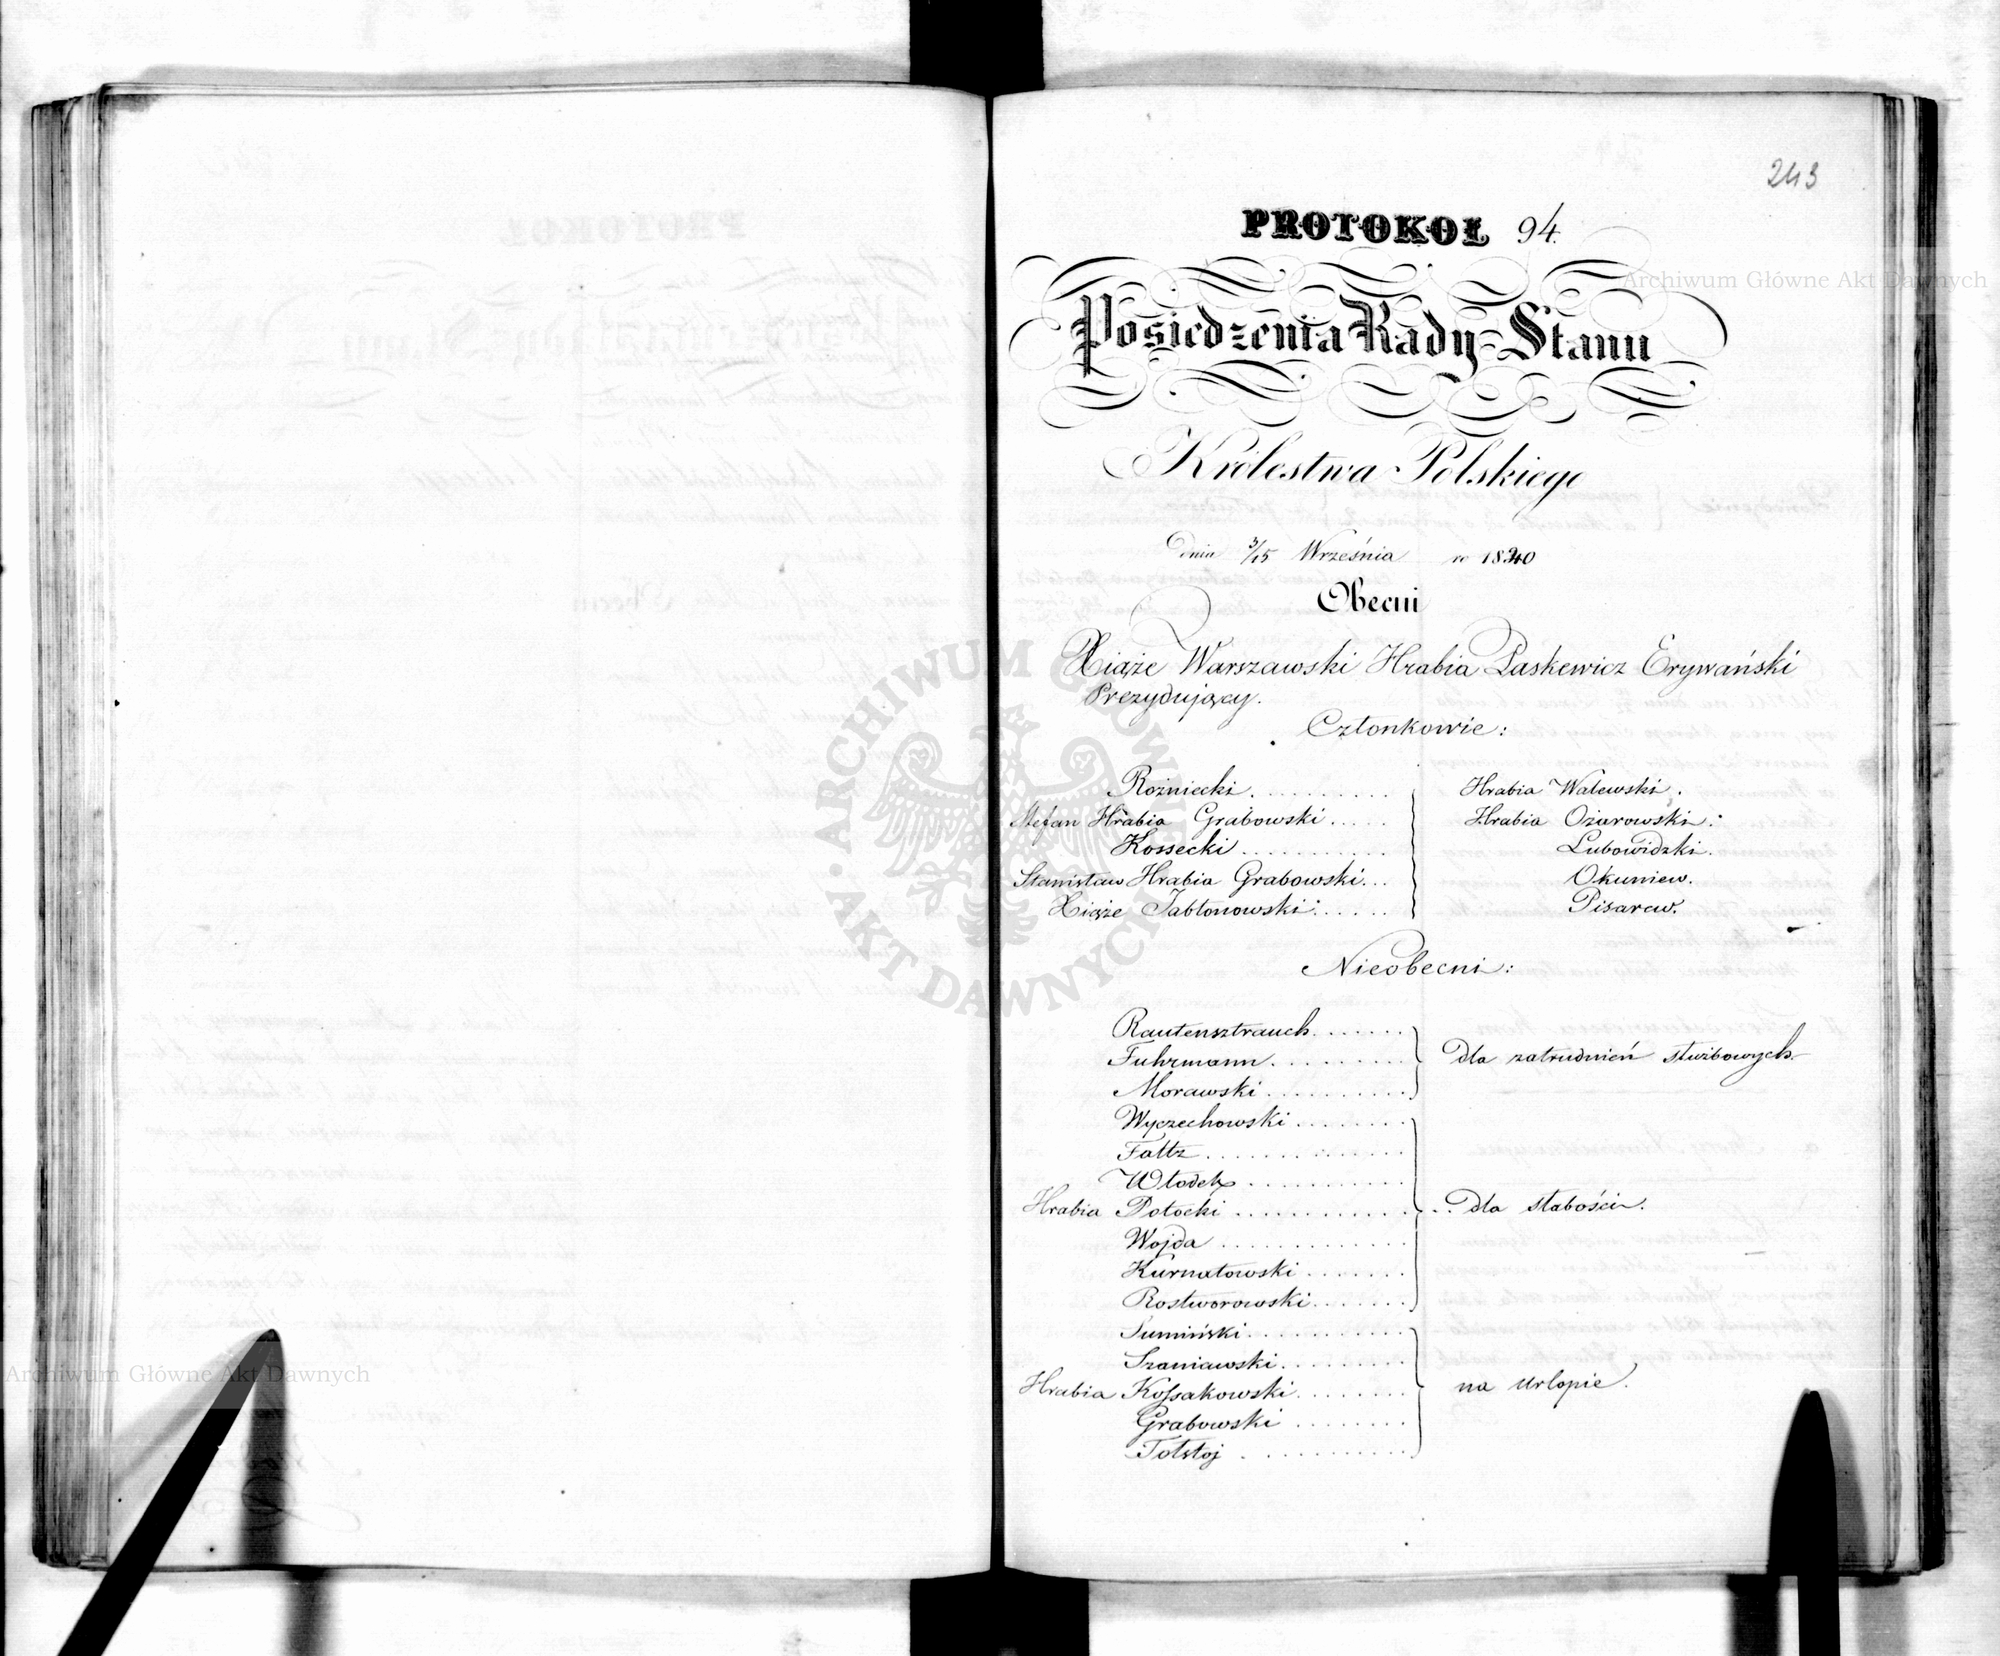 243
PROTOKOŁ 94.
Posiedzenia Rady Stanu
Królestwa Polskiego
dnia 3/15 Września w 1840
Obecni
Xiąże Warszawski Hrabia Paskewicz Erywański
Prezydujący.
Członkowie:
Rożniecki . . . . . . . . . . Hrabia Walewski.
Stefan Hrabia Grabowski . . . . . Hrabia Ożarowski.
Kossecki . . . . . . . . . . . Lubowidzki.
Stanisław Hrabia Grabowski . . . Okuniew.
Xiąże Jabłonowski . . . . . . Pisarew.
Nieobecni:
Rautensztrauch . . . . . . .
Fuhrmann . . . . . . . . . dla zatrudnień służbowych.
Morawski . . . . . . . . . .
Wyczechowski . . . . . . . .
Faltz . . . . . . . . . . . . .
Włodek . . . . . . . . . . .
Hrabia Potocki . . . . . . . . . . . . dla słabości.
Wojda . . . . . . . . . . . . .
Kurnatowski . . . . . . .
Rostworowski . . . . . . .
Sumiński . . . . . . . . . . .
Szaniawski . . . . . . . . .
Hrabia Kossakowski . . . . . . . . na urlopie.
Grabowski . . . . . . . .
Tołstoj . . . . . . . . . . .
Archiwum Główne Akt Dawnych
Archiwum Główne Akt Dawnych
ARCHIWUM GŁÓWNE AKT DAWNYCH